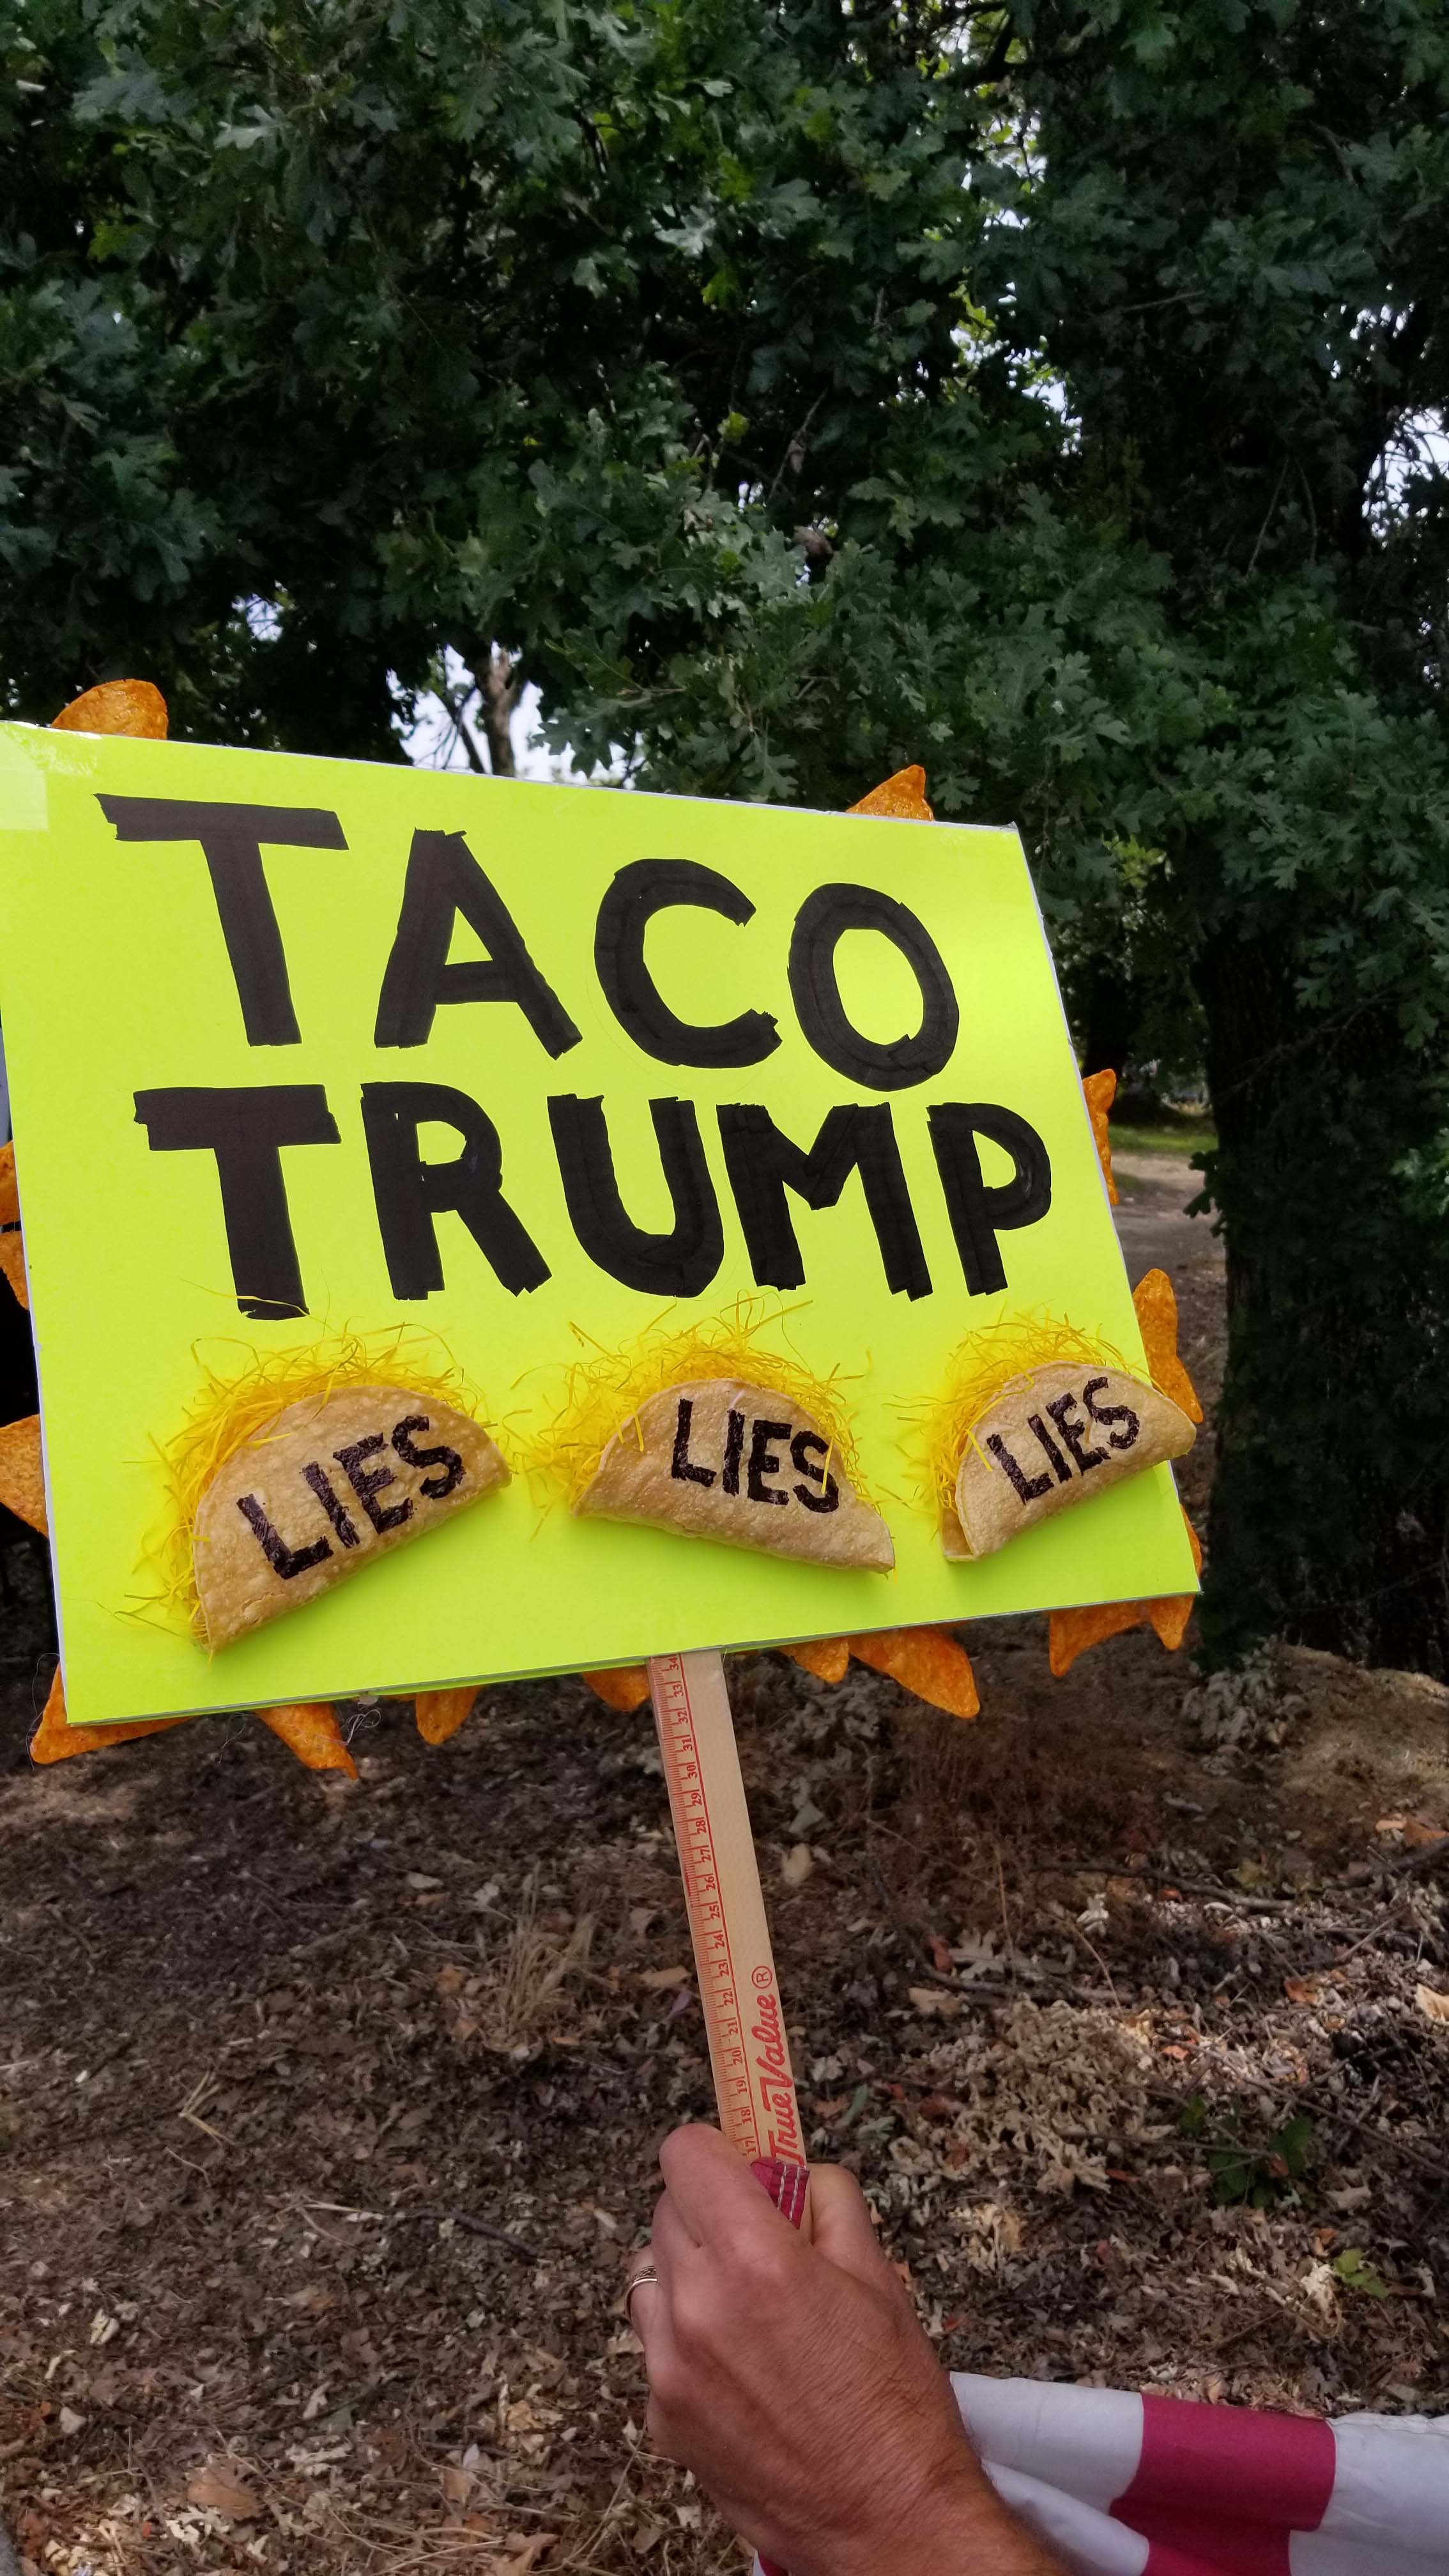 TACO
TRUMP
LIES LIES LIES
34
33
32
31
30
29
28
27
26
25
24
23
22
21
20
19
18
17
True Value®